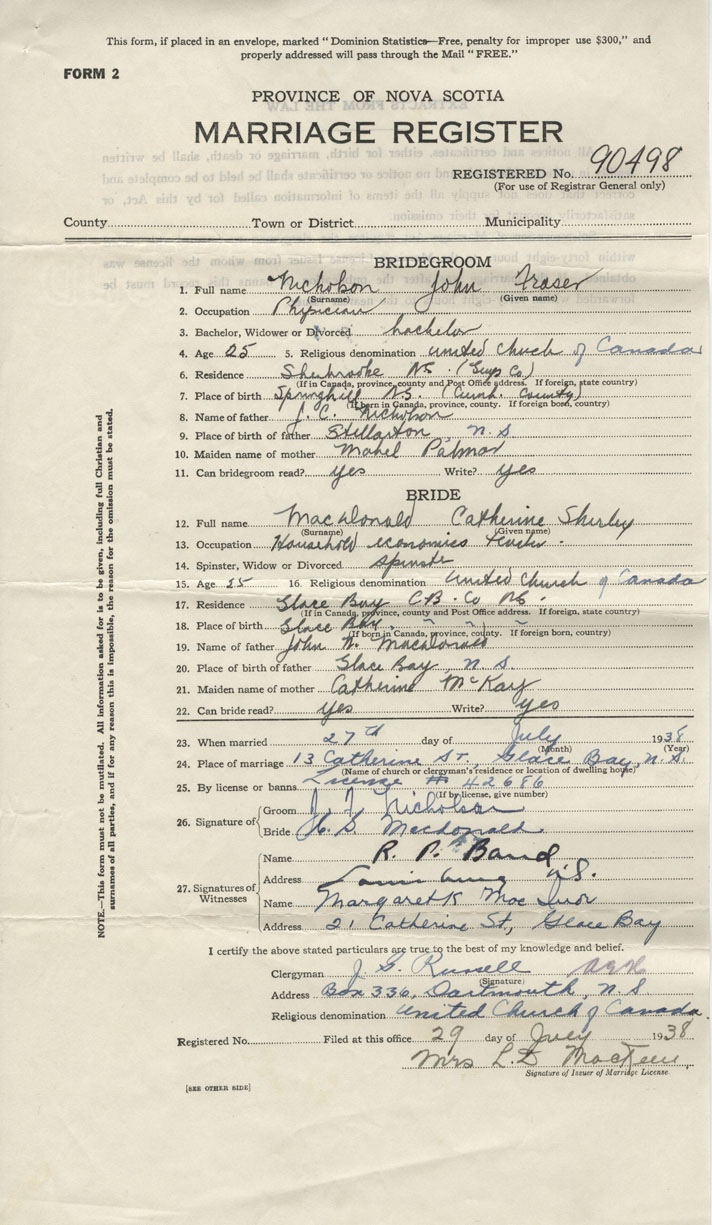 This form, if placed in an envelope, marked "Dominion Statistics—Free, penalty for improper use $300," and
properly addressed will pass through the Mail "FREE."
FORM 2
PROVINCE OF NOVA SCOTIA
MARRIAGE REGISTER
REGISTERED No. 90498
(For use of Registrar General only)
County Town or District Municipality
BRIDEGROOM
1. Full name Nicholson John Fraser
(Surname) (Given name)
2. Occupation Physician
3. Bachelor, Widower or Divorced bachelor
4. Age 25 5. Religious denomination United Church of Canada
6. Residence Sherbrooke N.S. (Guys Co)
(If in Canada, province, county and Post Office address. If foreign, state country)
7. Place of birth Springhill N.S. (Cumb. County)
(If born in Canada, province, county. If foreign born, country)
8. Name of father J. C. Nicholson
9. Place of birth of father Stellarton N.S
10. Maiden name of mother Mabel Palmer
11. Can bridegroom read? yes Write? yes
BRIDE
12. Full name MacDonald Catherine Shirley
(Surname) (Given name)
13. Occupation Household economics teacher.
14. Spinster, Widow or Divorced spinster
15. Age 25 16. Religious denomination United Church of Canada
17. Residence Glace Bay C.B. Co NS.
(If in Canada, province, county and Post Office address. If foreign, state country)
18. Place of birth Glace Bay " " "
(If born in Canada, province, county. If foreign born, country)
19. Name of father John N. MacDonald
20. Place of birth of father Glace Bay N S
21. Maiden name of mother Catherine McKay
22. Can bride read? yes Write? yes
23. When married 27th day of July 1938
(Month) (Year)
24. Place of marriage 13 Catherine St., Glace Bay, N.S.
(Name of church or clergyman's residence or location of dwelling house)
25. By license or banns License # 42686
(If by license, give number)
26. Signature of Groom J. F. Nicholson
Bride C. S. Macdonald
27. Signatures of Witnesses
Name R. P. Band
Address N.S.
Name Margaret K Mac
Address 21 Catherine St, Glace Bay
I certify the above stated particulars are true to the best of my knowledge and belief.
Clergyman J. G. Russell
(Signature)
Address Box 336, Dartmouth, N S
Religious denomination United Church of Canada.
Registered No. Filed at this office 29 day of July 1938
Mrs L. D MacKeen
Signature of Issuer of Marriage License
[SEE OTHER SIDE]
NOTE.—This form must not be mutilated. All information asked for is to be given, including full Christian and
surnames of all parties, and if for any reason this is impossible, the reason for the omission must be stated.